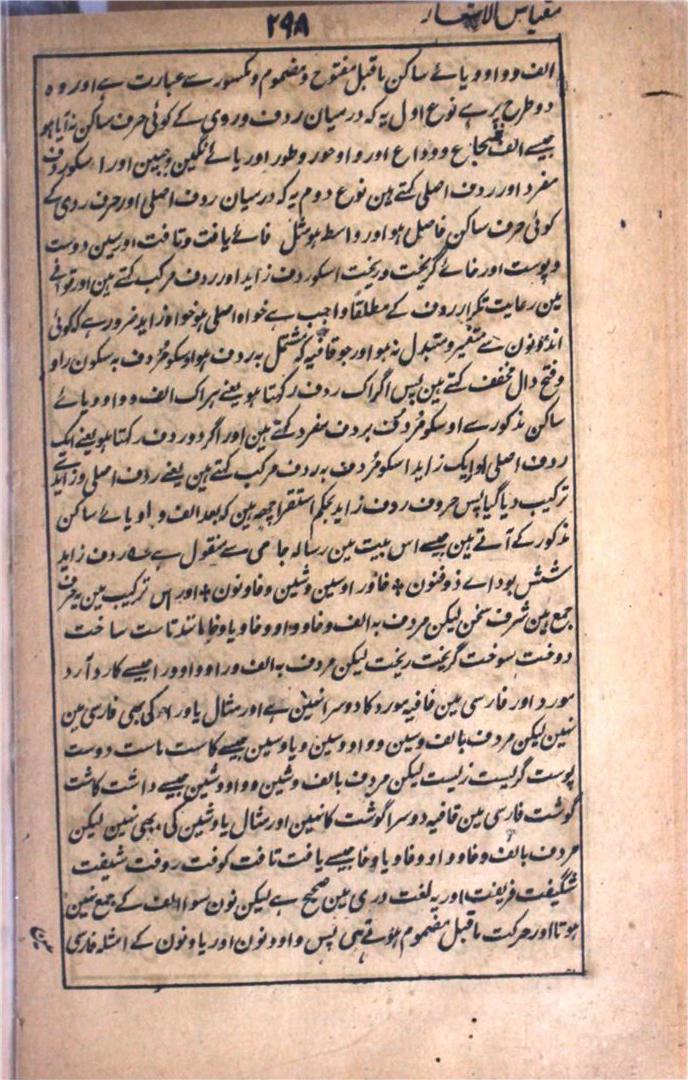 مقیاس الاشعار
۲۹۸
الف و واو و یائے ساکن ماقبل مفتوح و مضموم و مکسور سے عبارت ہے اور وہ
دو طرح پر ہے نوع اول یہ کہ درمیان ردف و روی کے کوئی حرف ساکن نہ آیا ہو
جیسے الف شجاع و وداع اور واو حور و طور اور یائے نگین و جبین اور اسکو ردف
مفرد اور ردف اصلی کہتے ہین نوع دوم یہ کہ درمیان ردف اصلی اور حرف روی کے
کوئی حرف ساکن فاصل ہو اور واسط ہو مثل فائے یافت و تافت اور سین دوست
و پوست اور خائے گریخت و ریخت اسکو ردف زاید اور ردف مرکب کہتے ہین اور قوافے
مین رعایت تکرار ردف کے مطلقا واجب ہے خواہ اصلی ہو خواہ زاید ضرور ہے کہ کوئی
اندونون سے متغیر و متبدل نہ ہو اور جو قافیہ کہ مشتمل بہ ردف ہو اوسکو مُردف بہ سکون راو
و فتح دال مخفف کہتے ہین پس اگر اک ردف رکہتا ہو یعنے ہر اک الف و واو و یائے
ساکن مذکور سے اوسکو مُردف بردف مفرد کہتے ہین اور اگر دو ردف رکہتا ہو یعنے ایک
ردف اصلی اور ایک زاید اسکو مُردف بہ ردف مرکب کہتے ہین یعنے ردف اصلی و زاید سے
ترکیب دیا گیا پس حروف ردف زاید بحکم استقرا چھہ ہین کہ بعد الف و واو یائے ساکن
مذکور کے آتے ہین جیسے اس بیت مین رسالہ جامی سے منقول ہے ردف زاید
شش بود اے ذوفنون ٭ خا و را و سین و شین و فا و نون ٭ اور اس ترکیب مین یہ حرف
جمع ہین شرف سخن لیکن مردف بہ الف و خا و واو و خا و یا و خا مانند تاست ساخت
دوخت سوخت گریخت ریخت لیکن مردف بہ الف و را و واو و را جیسے کارد آرد
مورد اور فارسی مین قافیہ مورد کا دوسرا نہین ہے اور مثال یا و را کی بھی فارسی مین
نہین لیکن مردف بالف و سین و واو و سین و یا و سین جیسے کاست ماست دوست
پوست گریست زیست لیکن مردف بالف و شین و واو و شین جیسے داشت کاشت
گوشت فارسی مین قافیہ دوسرا گوشت کا نہین اور مثال یا و شین کی بھی نہین لیکن
مردف بالف و فا و واو و فا و یا و فا جیسے یافت تافت کوفت روفت شیفت
شگیفت فریفت اور یہ لغت دری مین صحیح ہے لیکن نون سوا الف کے جمع نہین
ہوتا اور حرکت ماقبل مضموم ہوتے ہی پس واو و نون اور یا و نون کے امثلہ فارسی